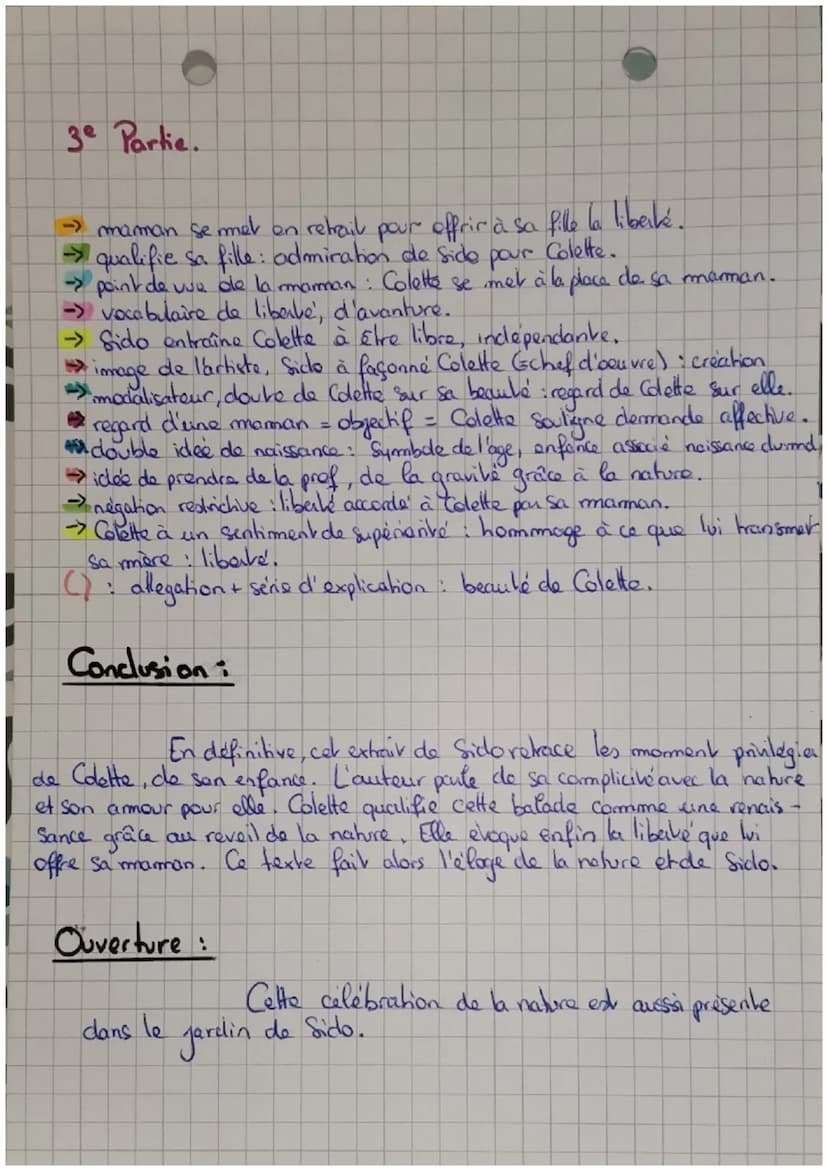 3e Partie.
→ maman se met en retrait pour offrir à sa fille la liberté.
→ qualifie sa fille : admiration de Sido pour Colette.
→ point de vue de la maman : Colette se met à la place de sa maman.
→ vocabulaire de liberté, d'avanture.
→ Sido entraîne Colette à être libre, indépendante.
→ image de l'artiste, Sido à façonné Colette (=chef d'oeuvre) : création
→ modalisateur, doute de Colette sur sa beauté : regard de Colette sur elle.
→ regard d'une maman = objectif = Colette souligne demande affective.
→ double idée de naissance : Symbole de l'âge, enfance associé naissance du md
→ idée de prendre de la prof, de la gravité grâce à la nature.
→ négation restrictive : liberté accordé à Colette par sa maman.
→ Colette à un sentiment de supériorité : hommage à ce que lui transmet
sa mère : liberté.
() : allegation + série d'explication : beauté de Colette.
Conclusion :
En définitive, cet extrait de Sido retrace les moment privilégier
de Colette, de son enfance. L'auteur parle de sa complicité avec la nature
et son amour pour elle. Colette qualifie cette balade comme une renais-
sance grâce au reveil de la nature. Elle évoque enfin la liberté que lui
offre sa maman. Ce texte fait alors l'éloge de la nature et de Sido.
Ouverture :
Cette célébration de la nature est aussi présente
dans le jardin de Sido.